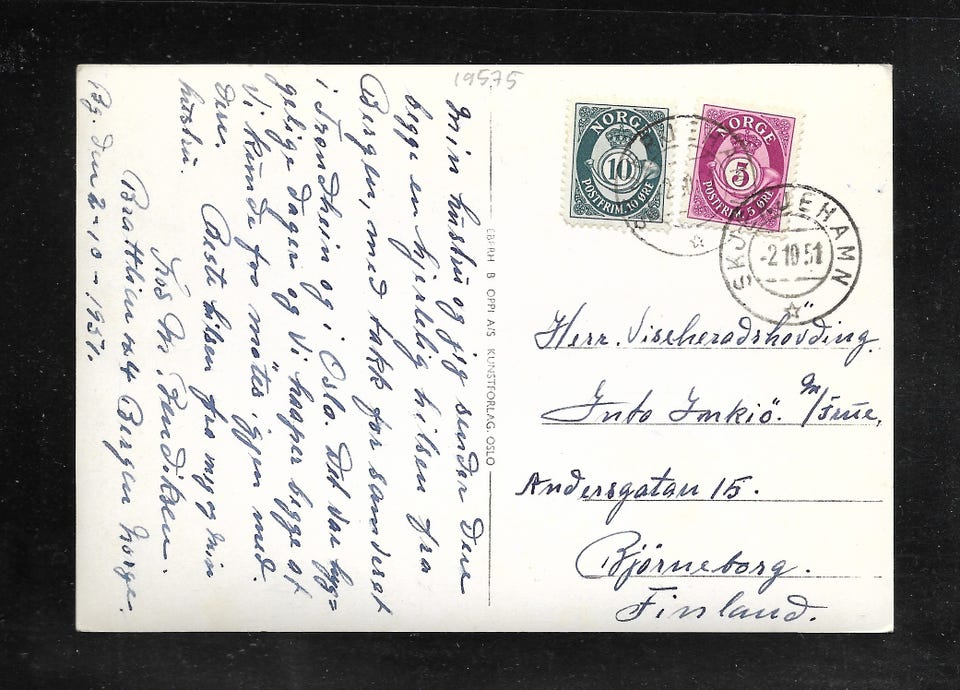 19575
NORGE
10
POSTFRIM. 10 ØRE
NORGE
5
POSTFRIM. 5 ØRE
-2 10 51
EHAMN
Herr. Viseheradshövding
Into Imkiö. m/Frue.
Andersgatan 15.
Björneborg.
Finland.
EBERH B OPPI A/S KUNSTFORLAG, OSLO
Min hustru og jeg sender Dere
begge en hjertelig hilsen fra
Bergen, med takk for samværet
i Trondheim og i Oslo. Det var hyg-
gelige dager og vi haaper begge at
vi kunde faa mötes igjen med
Dere.
Beste hilsen fra meg og min
hustru.
M. Bendiksen.
Brattlien 24 Bergen Norge.
Bg. den 2-10-1951.